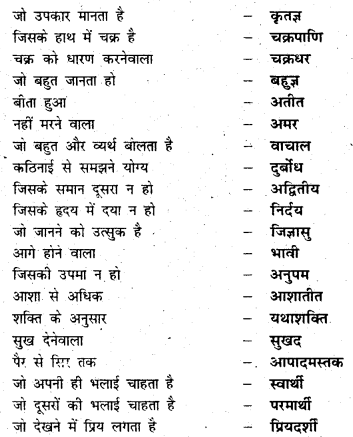 जो उपकार मानता है – कृतज्ञ
जिसके हाथ में चक्र है – चक्रपाणि
चक्र को धारण करनेवाला – चक्रधर
जो बहुत जानता हो – बहुज्ञ
बीता हुआ – अतीत
नहीं मरने वाला – अमर
जो बहुत और व्यर्थ बोलता है – वाचाल
कठिनाई से समझने योग्य – दुर्बोध
जिसके समान दूसरा न हो – अद्वितीय
जिसके हृदय में दया न हो – निर्दय
जो जानने को उत्सुक है – जिज्ञासु
आगे होने वाला – भावी
जिसकी उपमा न हो – अनुपम
आशा से अधिक – आशातीत
शक्ति के अनुसार – यथाशक्ति
सुख देनेवाला – सुखद
पैर से सिर तक – आपादमस्तक
जो अपनी ही भलाई चाहता है – स्वार्थी
जो दूसरों की भलाई चाहता है – परमार्थी
जो देखने में प्रिय लगता है – प्रियदर्शी